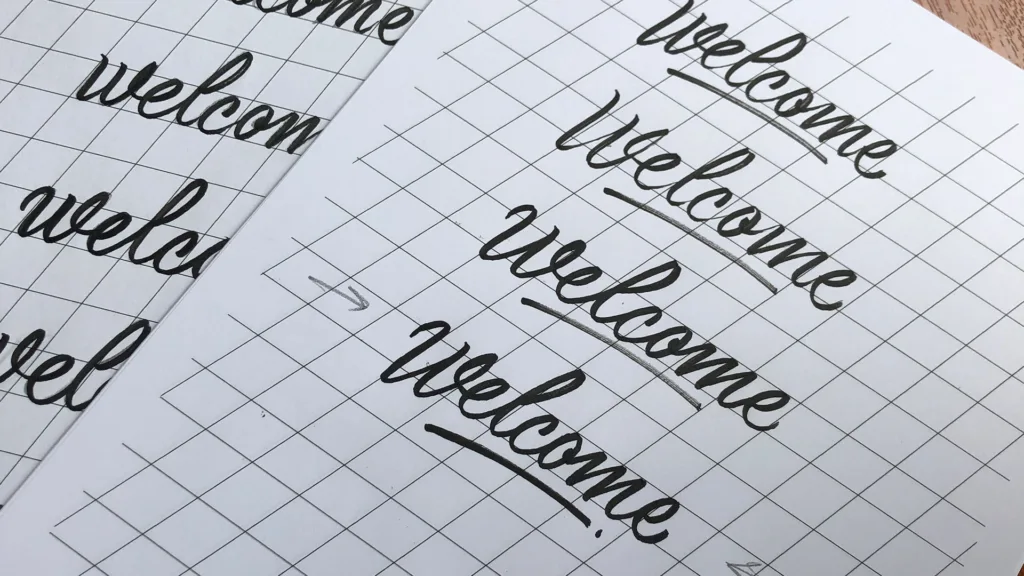 welcon
welc
vel
Welcome
Welcome
Welcome
Welcome